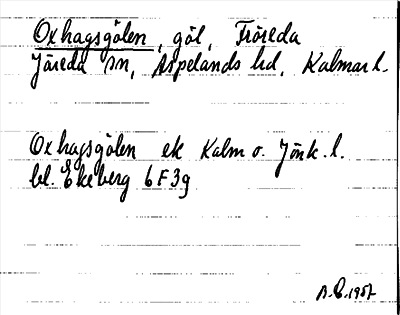 Oxhagsgölen, göl, Fröreda
Järeda sn, Aspelands hd, Kalmar l.
Oxhagsgölen ek Kalm o. Jönk. l.
bl. Ekeberg 6F3g
1957